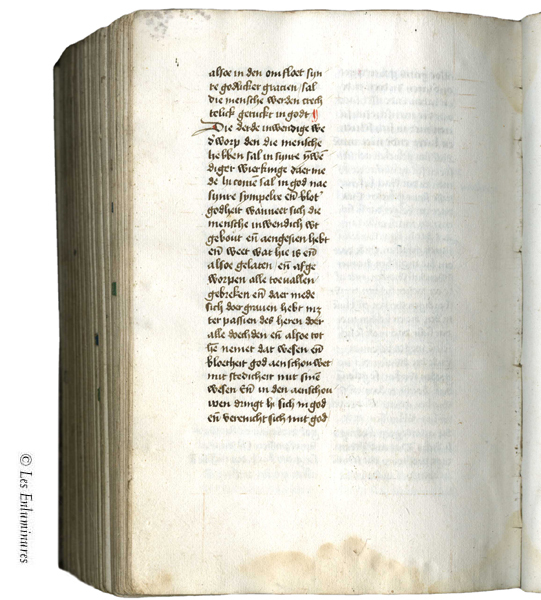 alsoe in den omsloet sijn
re godlicker gracien / sal
die mensche werden crech
telick geruckt in godt
Die derde inwendige we
dworp den die mensche
hebben sal in sijnre ynwē
diger wierkinge daer me
de hi comē sal in god nae
sijnre sympelre eñ blot
godheit wanneer sich die
mensche inwendich wt
gebout eñ aengesien hebt
eñ weet wat hie is eñ
alsoe gelaten / eñ afge
worpen alle toevallen
gebreken eñ daer mede
sich doer grauen hebt mz
ter passien des heren doer
alle doechden eñ alsoe tot
hē nemet dat wesen eñ
bloetheit god aenschouwet
mit stedicheit mit sinē
wesen Eñ in den aenschou
wen dringt hi sich in god
eñ verenicht sich mit god
© Les Enluminures